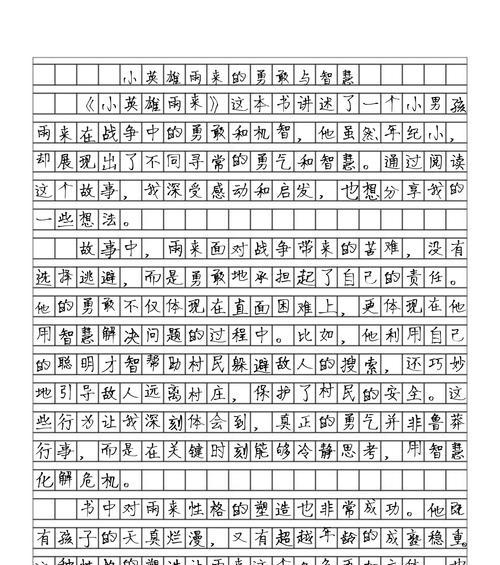 小英雄雨来的勇敢与智慧
《小英雄雨来》这本书讲述了一个小男孩
雨来在战争中的勇敢和机智，他虽然年纪小，
却展现出了不同寻常的勇气和智慧。通过阅读
这个故事，我深受感动和启发，也想分享我的
一些想法。
故事中，雨来面对战争带来的苦难，没有
选择逃避，而是勇敢地承担起了自己的责任。
他的勇敢不仅体现在直面困难上，更体现在他
用智慧解决问题的过程中。比如，他利用自己
的聪明才智帮助村民躲避敌人的搜索，还巧妙
地引导敌人远离村庄，保护了村民的安全。这
些行为让我深刻体会到，真正的勇气并非鲁莽
行事，而是在关键时刻能够冷静思考，用智慧
化解危机。
书中对雨来性格的塑造也非常成功。他既
有孩子的天真烂漫，又有超越年龄的成熟稳重。